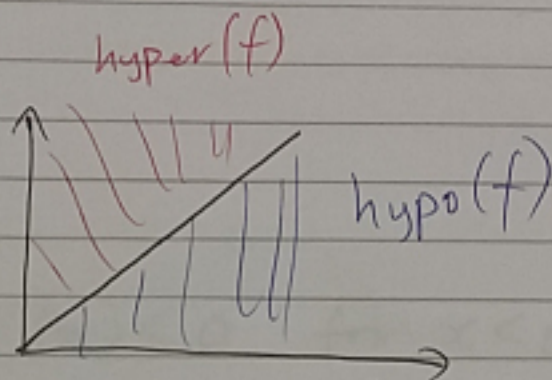 hyper(f)
hypo(f)